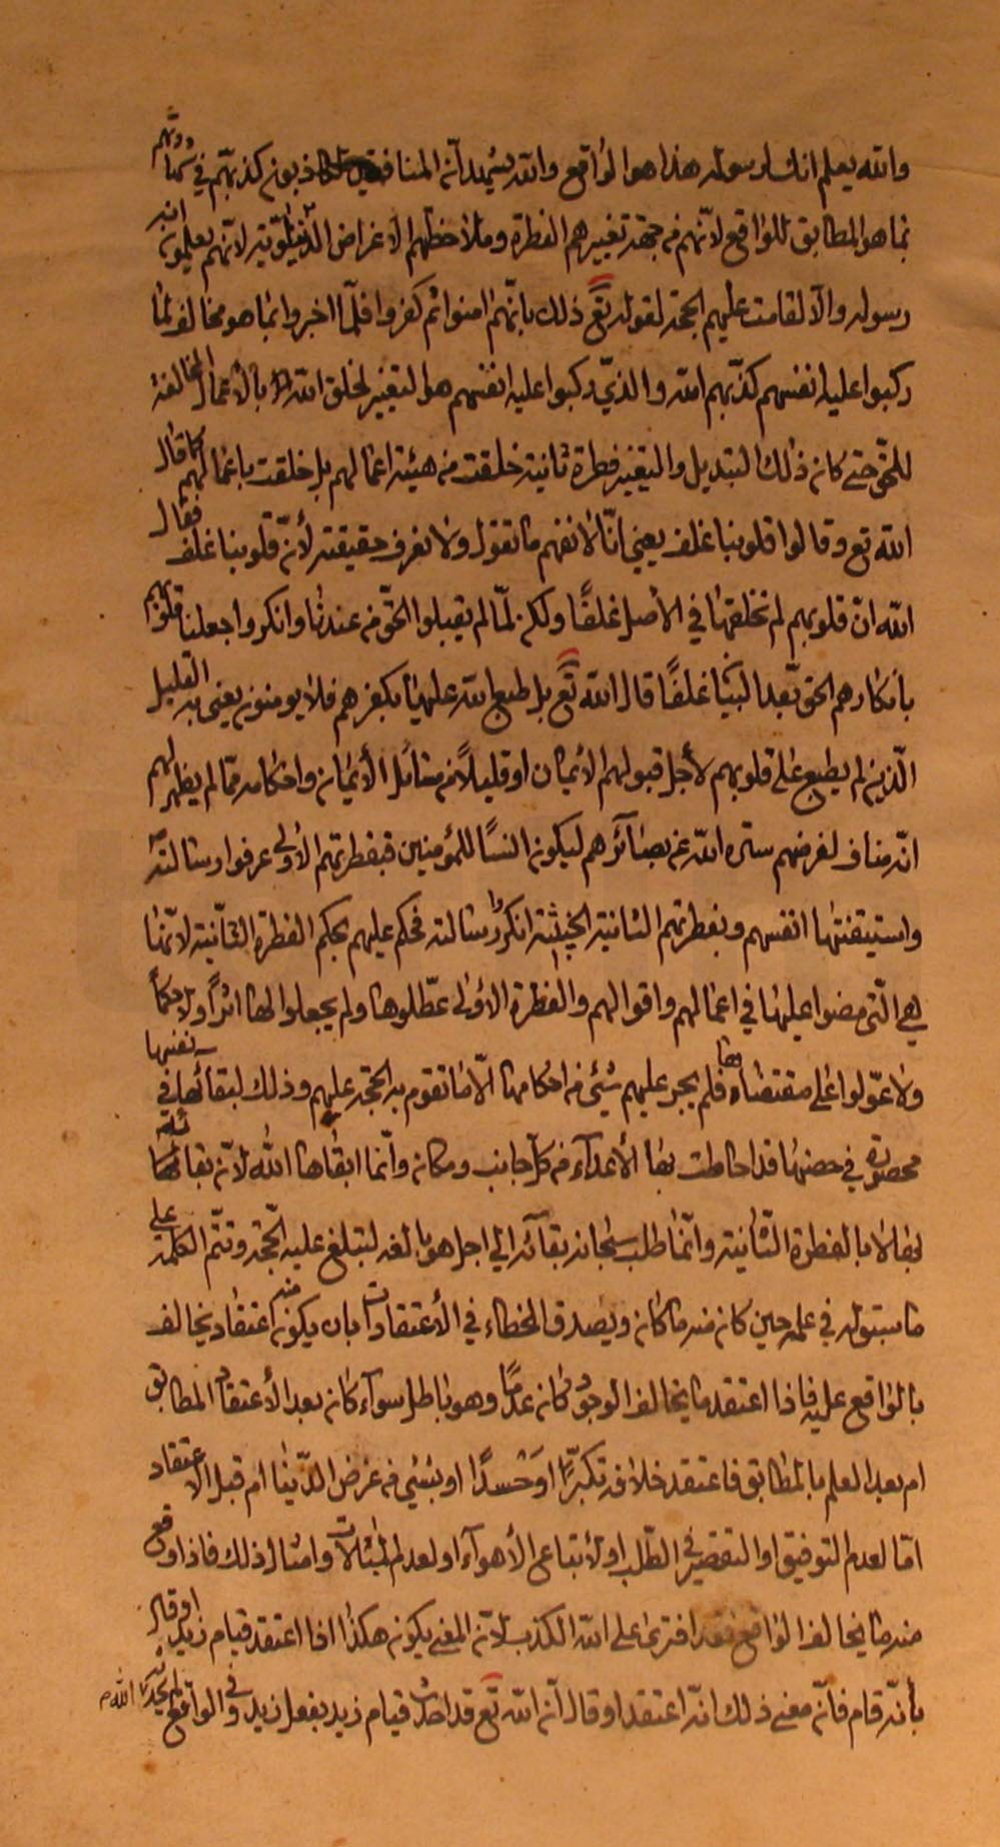 والله يعلم انك لرسوله هذا هو الواقع والله يشهد ان المنافقين لكاذبون كذبهم في شهادتهم
بما هو المطابق للواقع لانهم من جهة تغييرهم الفطرة وملاحظتهم الاغراض الدنيوية لانهم يعلمون انه
رسوله والا لقامت عليهم الحجة لقوله تع ذلك بانهم امنوا ثم كفروا فلما اخبروا بما هو مخالف لما
ركبوا عليه انفسهم كذبهم الله والذي ركبوا عليه انفسهم هو التغيير لخلق الله بالاعمال المخالفة
للحق حتى كان ذلك التبديل والتغيير فطرة ثانية خلقت من هيئة اعمالهم بل خلقت باعمالهم كما قال
الله تع وقالوا قلوبنا غلف يعني انا لا نفهم ما تقول ولا نعرف حقيقته لأن قلوبنا غلف فقال
الله ان قلوبهم لم نخلقها في الأصل غلفًا ولكن لمّا لم يقبلوا الحقّ من عندنا وانكروا جعلنا قلوبهم
بانكارهم الحق بعد البيان غلفًا قال الله تع بل طبع الله عليها بكفرهم فلا يومنون يعني به القليل
الّذين لم يطبع على قلوبهم لأجل قبولهم الايمان او قليلاً من مسائل الأيمان واحكامه ممّا لم يظهر لهم
انّه مناف لغرضهم ستره الله عن بصائرهم ليكون انسًا للمؤمنين فبفطرتهم الاولى عرفوا رسالته ص
واستيقنتها انفسهم وبفطرتهم الثانية الخبيثة انكروا رسالته فحكم عليهم بحكم الفطرة الثّانية لانّها
هي الّتي مضوا عليها في اعمالهم واقوالهم والفطرة الاولى عطّلوها ولم يجعلوا لها اثراً ولا حكماً
ولا عوّلوا على مقتضاها فلم يجر عليهم شيئ من احكامها الّا ما تقوم به الحجّة عليهم وذلك لبقائها في نفسها
محصورة في حصنها قد احاطت بها الأعداء من كلّ جانب ومكان وانّما ابقاها الله لانّ بقائها
بقاء لا بالفطرة الثّانية وانّما طلب سبحانه بقائه الى اجل هو بالغه لتبلغ عليه الحجّة وتتمّ الكلمة على
ما سبق له في علمه حين كان منه ما كان ويصدق الخطاء في الأعتقادات بان يكون منه اعتقاد يخالف
بالواقع عليه فاذا اعتقد ما يخالف الوجود كان عدمًا وهو باطل سوآء كان بعد الأعتقاد المطابق
ام بعد العلم بالمطابق فاعتقد خلافه تكبرًّا او حَسدًا او بشيئ من غرض الدّنيا ام قبل الاعتقاد
امّا لعدم التوفيق او التقصير في الطّلب او لأتباع الأهوآء او لعدم المبالات وامثال ذلك فاذا وقع
منه ما يخالف الواقع فقد افترى على الله الكذب لانّ المعنى يكون هكذا اذا اعتقد قيام زيد او قال
بأنّه قام فانّ معنى ذلك انّه اعتقد او قال انّ الله تع قد احدث قيام زيد بفعل زيد وفي الواقع لم يحدث الله